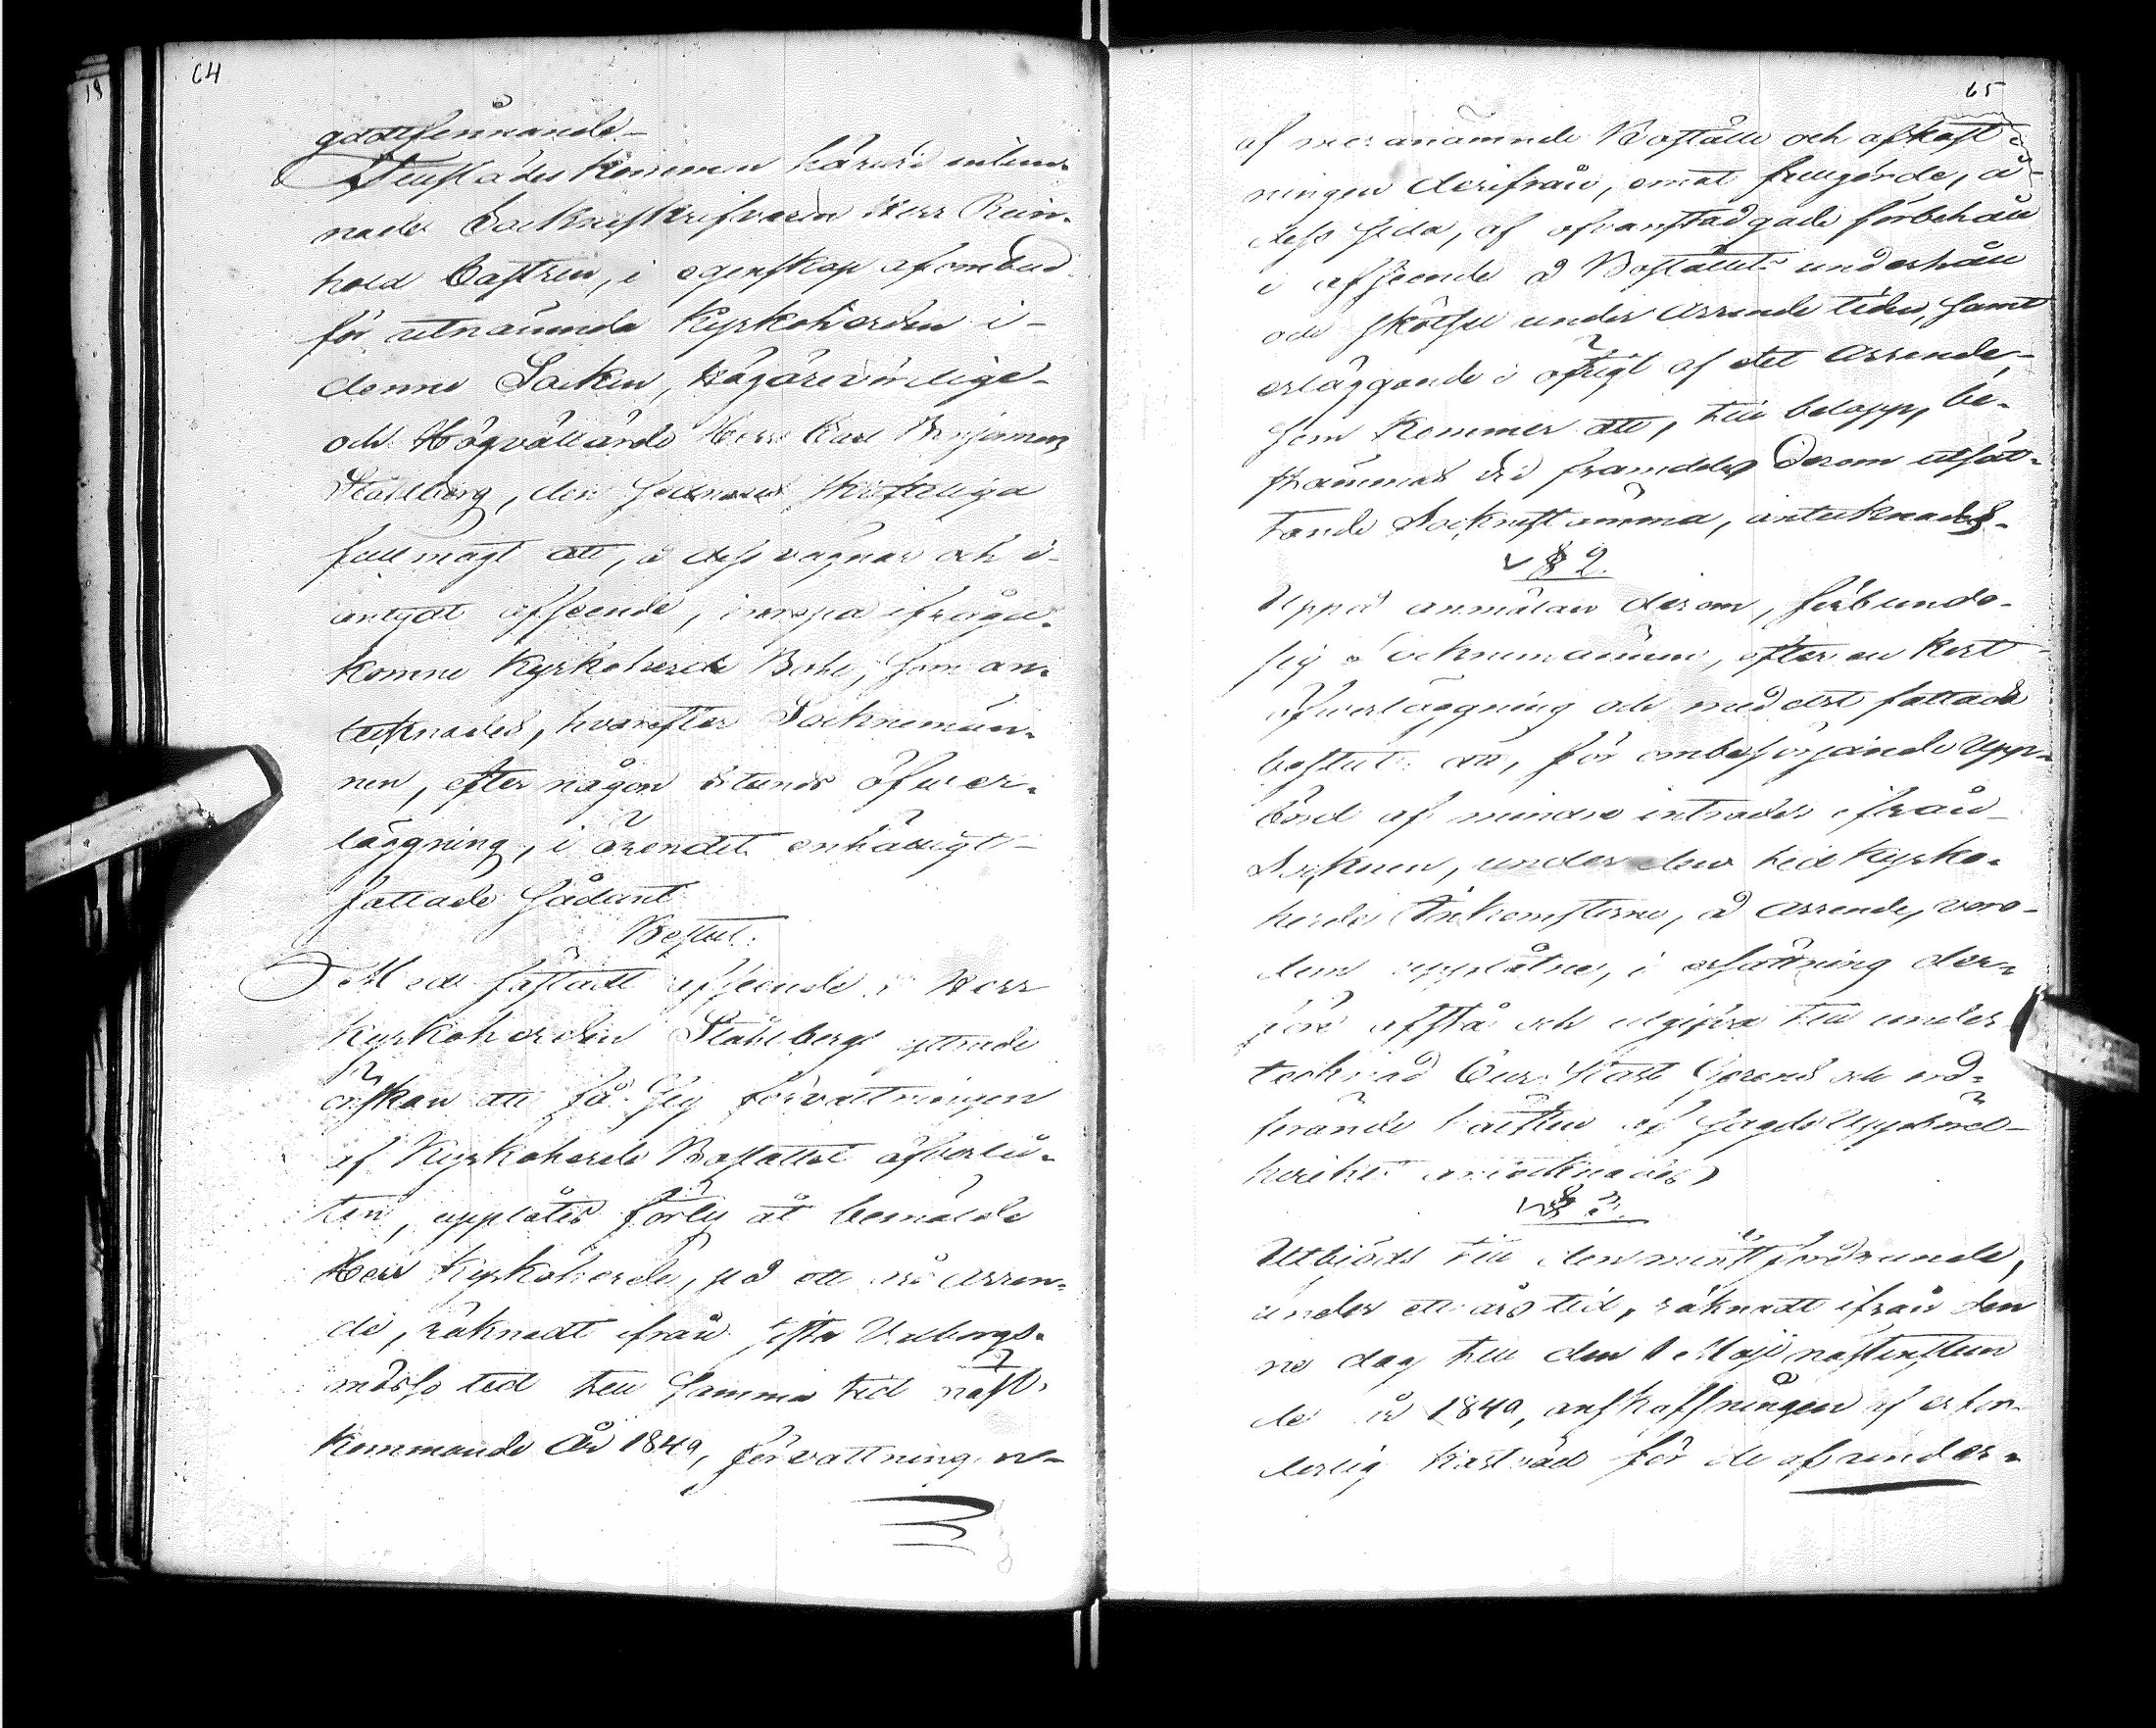 64
godtfinnande.
Tillstädes kommen härvid inlem-
nade Socknskrifvaren Herr Rein-
hold Castren, i egenskap af ombud
för utnämnde Kyrkoherden i
denne Socken, Högärevördige
och Högvällärde Herr Carl Benjamin
Stålberg, den sednares skrifteliga
fullmagt att, å dess vägnar och i
antydt afseende, inropa ifråga-
komne Kyrkoherde Bohl, som an-
tecknades, hvarefter Sockenmän-
nen, efter någon stunds öfver-
läggning, i ärendet enhälligt
fattade sådant
Beslut.
Med fästadt afseende å Herr
Kyrkoherden Stålbergs yttrade
önskan att få sig förvaltningen
af Kyrkoherde Bostället öfverlå-
ten, upplåtes förty åt bemälde
Herr Kyrkoherde, på ett års arren-
de, räknadt ifrån sista Valborgs-
mässo tid till samma tid näst-
kommande År 1849, förvaltningen
65
af mera nämnde Boställe och afkast-
ningen derifrån, emot fullgörde, å
dess sida, af ofvanstadgade förbehåll
i afseende å Boställets underhåll
och skötsel under arrende tiden, samt
erläggande i öfrigt af det arrende,
som kommer att, till belopp, be-
stämmas vid framdeles derom utsät-
tande Socknestämma, antecknades.
§ 2.
Uppå anmälan derom, förbundo
sig Socknemännen, efter en kort
öfverläggning och medelst fattade
beslut att, för ombesörjande upp-
börd af mindre intrader ifrån
Socknen, under den tid Kyrko-
herde Inkomsterne, å arrende, voro
dem upplåtne, i ersättning der-
före afstå och utgifva till under
tecknad
hvilket antecknades,
§ 3.
Utbjöds till den minstfordrande,
under ett års tid, räknadt ifrån den-
ne dag till den 1 Maji nästinstun-
de år 1849, anskaffningen af erfor-
derlig för de af under-